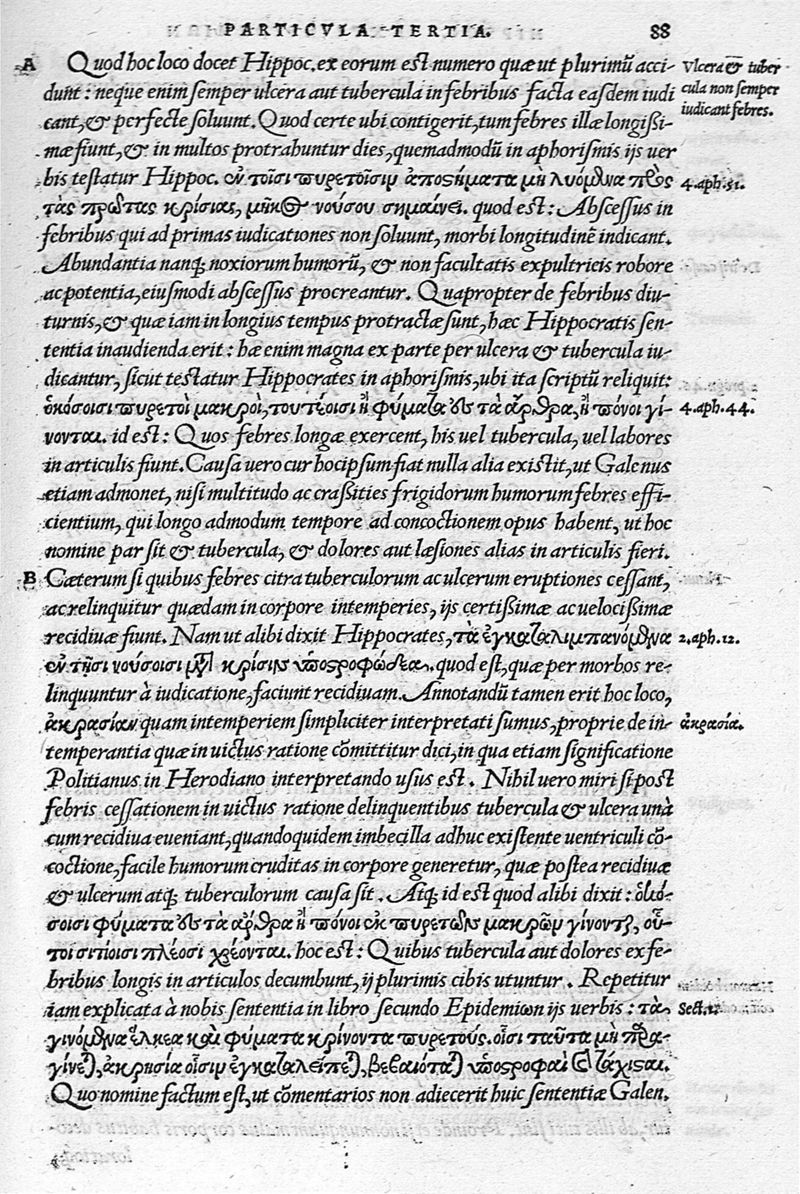 PARTICVLA TERTIA. 88
A Quod hoc loco docet Hippoc. ex eorum est numero quæ ut plurimũ acci-
Vlcera & tuber
dunt: neque enim semper ulcera aut tubercula in febribus facta easdem iudi
cula non semper
cant, & perfecte soluunt. Quod certe ubi contigerit, tum febres illæ longißi-
iudicant febres.
mæ fiunt, & in multos protrahuntur dies, quemadmodũ in aphorismis ijs uer
bis testatur Hippoc. ἐν τοῖσι πυρετοῖσιν ἀποστήματα μὴ λυόμενα πρὸς
4. aph. 51.
τὰς πρώτας κρίσιας, μῆκος νούσου σημαίνει. quod est: Abscessus in
febribus qui ad primas iudicationes non soluunt, morbi longitudinẽ indicant.
Abundantia nanq; noxiorum humorũ, & non facultatis expultricis robore
ac potentia, eiusmodi abscessus procreantur. Quapropter de febribus diu-
turnis, & quæ iam in longius tempus protractæ sunt, hæc Hippocratis sen-
tentia inaudienda erit: hæ enim magna ex parte per ulcera & tubercula iu-
dicantur, sicut testatur Hippocrates in aphorismis, ubi ita scriptũ reliquit:
ὁκόσοισι πυρετοὶ μακροὶ, τουτέοισι ἢ φύματα ἐς τὰ ἄρθρα, ἢ πόνοι γί-
4. aph. 44.
νονται. id est: Quos febres longæ exercent, his uel tubercula, uel labores
in articulis fiunt. Causa uero cur hoc ipsum fiat nulla alia existit, ut Galenus
etiam admonet, nisi multitudo ac craßities frigidorum humorum febres effi-
cientium, qui longo admodum tempore ad concoctionem opus habent, ut hoc
nomine par sit & tubercula, & dolores aut læsiones alias in articulis fieri.
B Cæterum si quibus febres citra tuberculorum ac ulcerum eruptiones cessant,
ac relinquitur quædam in corpore intemperies, ijs certißimæ ac uelocißimæ
recidiuæ fiunt. Nam ut alibi dixit Hippocrates, τὰ ἐγκαταλιμπανόμενα
2. aph. 12.
ἐν τῇσι νούσοισι μετὰ κρίσιν ὑποστροφώδεα. quod est, quæ per morbos re-
linquuntur à iudicatione, faciunt recidiuam. Annotandũ tamen erit hoc loco,
ἀκρασίαν quam intemperiem simpliciter interpretati sumus, proprie de in-
ἀκρασία.
temperantia quæ in uictus ratione cõmittitur dici, in qua etiam significatione
Politianus in Herodiano interpretando usus est. Nihil uero miri si post
febris cessationem in uictus ratione delinquentibus tubercula & ulcera unà
cum recidiua eueniant, quandoquidem imbecilla adhuc existente uentriculi cõ-
coctione, facile humorum cruditas in corpore generetur, quæ postea recidiuæ
& ulcerum atq; tuberculorum causa sit. Atq; id est quod alibi dixit: ὁκό-
σοισι φύματα ἐς τὰ ἄρθρα ἢ πόνοι ἐκ πυρετῶν μακρῶν γίνονται, οὗ-
τοι σιτίοισι πλέοσι χρέονται. hoc est: Quibus tubercula aut dolores ex fe-
bribus longis in articulos decumbunt, ij plurimis cibis utuntur. Repetitur
iam explicata à nobis sententia in libro secundo Epidemiωn ijs uerbis: τὰ
Sect. 1.
γινόμενα ἕλκεα καὶ φύματα κρίνοντα πυρετούς. οἷσι ταῦτα μὴ παρα-
γίνεται, ἀκρησία οἷσιν ἐγκαταλείπεται, βεβαιόταται ὑποστροφαὶ καὶ τάχισται.
Quo nomine factum est, ut cõmentarios non adiecerit huic sententiæ Galen.